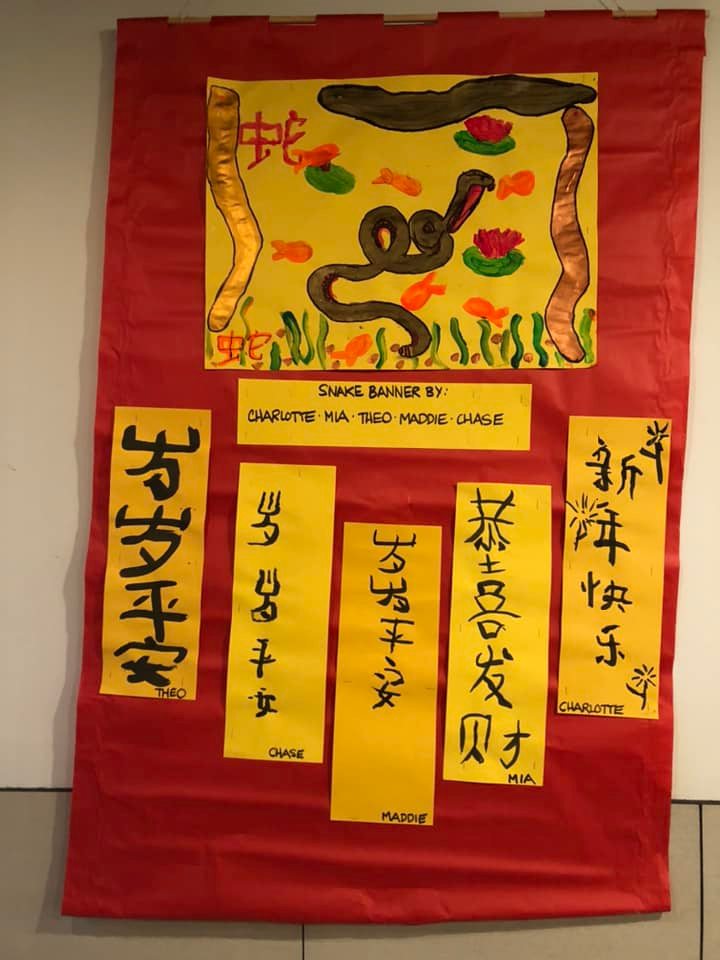 蛇
蛇
SNAKE BANNER BY:
CHARLOTTE · MIA · THEO · MADDIE · CHASE
岁岁平安
THEO
岁岁平安
CHASE
岁岁平安
MADDIE
恭喜发财
MIA
新年快乐
CHARLOTTE